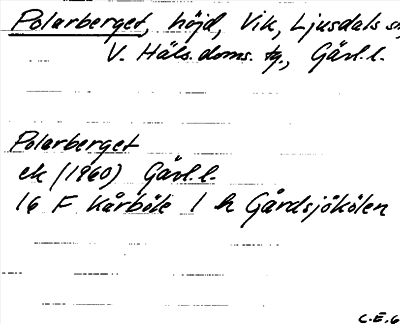 Polarberget, höjd, Vik, Ljusdals sn,
V. Häls. doms. tg., Gävl. l.
Polarberget
ek (1960) Gävl. l.
16 F Kårböle 1 h Gårdsjökölen
C.E.G